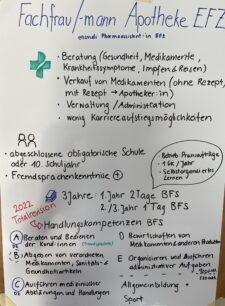 Fachfrau/-mann Apotheke EFZ
ehemals Pharmaassistent-in EFZ
• Beratung (Gesundheit, Medikamente,
Krankheitssymptome, Impfen & Reisen)
• Verkauf von Medikamenten (ohne Rezept,
mit Rezept → Apotheker:in)
• Verwaltung / Administration
• wenig Karriereaufstiegsmöglichkeiten
• abgeschlossene obligatorische Schule
oder 10. Schuljahr
• Fremdsprachenkenntnisse
Betrieb: Praxisaufträge
• 1GK / Jahr
• Selbstorganisiertes
Lernen
2022
Totalrevision
3 Jahre: 1. Jahr 2 Tage BFS
2./3. Jahr 1 Tag BFS
Handlungskompetenzen BFS
A Beraten und Bedienen
der Kund:innen
B Abgeben von verordneten
Medikamenten, Sanitäts- &
Gesundheitsartikeln
C Ausführen medizinischer
Abklärungen und Handlungen
D Bewirtschaften von
Medikamenten & anderen Produkten
E Organisieren und Ausführen
administrativer Aufgaben
Allgemeinbildung +
Sport